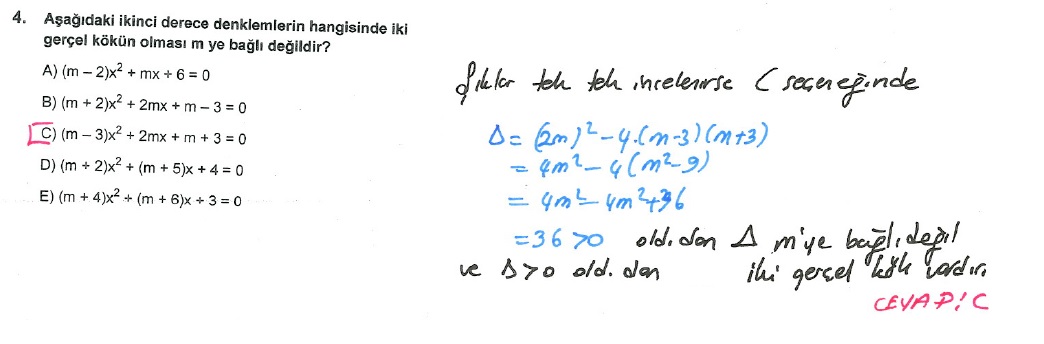 4. Aşağıdaki ikinci derece denklemlerin hangisinde iki
gerçel kökün olması m ye bağlı değildir?
A) (m – 2)x² + mx + 6 = 0
B) (m + 2)x² + 2mx + m – 3 = 0
C) (m – 3)x² + 2mx + m + 3 = 0
D) (m + 2)x² + (m + 5)x + 4 = 0
E) (m + 4)x² + (m + 6)x + 3 = 0
Şıklar tek tek incelenirse C seçeneğinde
Δ = (2m)² – 4.(m-3)(m+3)
= 4m² – 4(m²-9)
= 4m² – 4m²+36
= 36 > 0 old. dan Δ m'ye bağlı değil
ve Δ > 0 old. dan iki gerçel kök vardır.
CEVAP: C